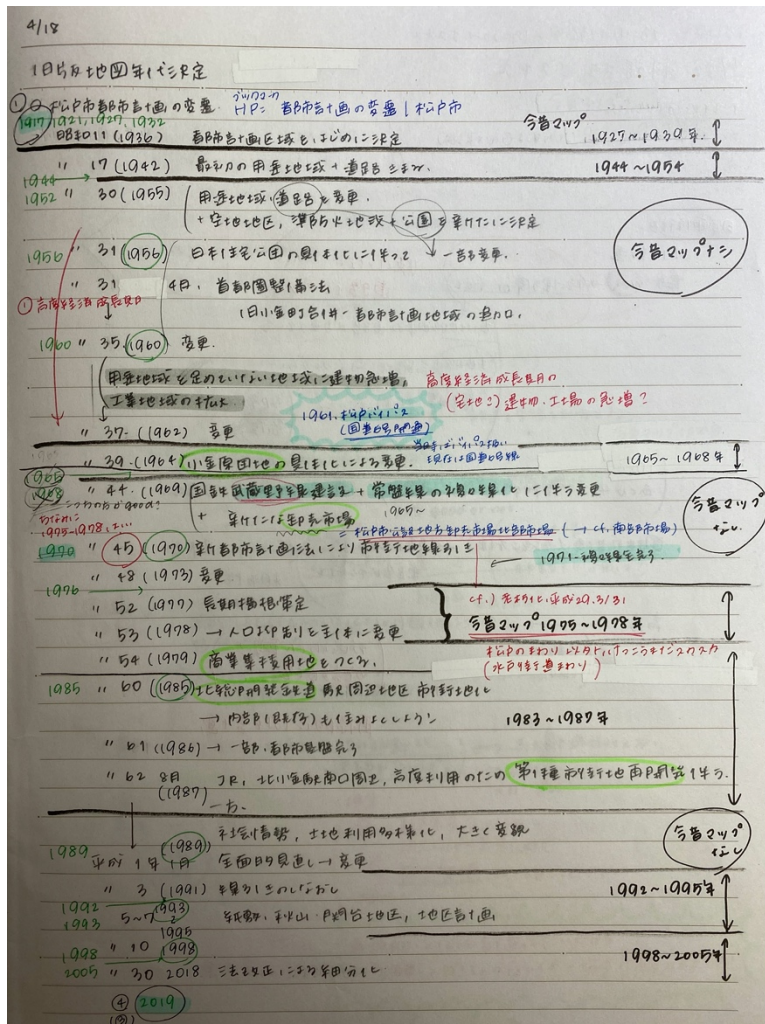 4/18
旧版地図年代決定
① 松戸市都市計画の変遷 ブックマーク HP= 都市計画の変遷 | 松戸市
1917, 1921, 1927, 1932 今昔マップ
昭和11 (1936) 都市計画区域をはじめに決定 1927~1939年
〃 17 (1942) 最初の用途地域+道路 1944~1954
1944
1952 〃 30 (1955) 用途地域・道路を変更
+空地地区, 準防火地域+公園を新たに決定
1956 〃 31 (1956) 日本住宅公団の具体化に伴って → 一部変更. 今昔マップナシ
〃 31 4月. 首都圏整備法
①高度経済成長期 旧小金町合併→都市計画地域の追加.
1960 〃 35. (1960) 変更.
用途地域を定めていない地域に建物急増, 高度経済成長期の
工業地域の拡大 (宅地の) 建物・工場の急増?
1961. 松戸バイパス
(国道6号開通)
〃 37. (1962) 変更 現在は国道6号線
〃 39. (1964) 小金原団地の具体化による変更. 1965~1968年
1965
1968 〃 44. (1969) 国鉄武蔵野線建設+常盤線の複々線化に伴う変更 今昔マップなし
1965~
+ 新たな卸売市場
= 松戸市公設地方卸売市場北部市場 (→cf. 南部市場)
1975-1978
1970 〃 45 (1970) 新都市計画法により市街地線引き
← 1971~複々線完了
〃 48 (1973) 変更
1976
〃 52 (1977) 長期構想策定 cf.) 平成29.3/31
〃 53 (1978) → 人口より割を主体に変更 今昔マップ1975~1978年
〃 54 (1979) 商業集積用地をつくる. 松戸のまわり以外
(水戸街道まわり)
1985 〃 60 (1985) 北総開発鉄道駅周辺地区市街地化
→ 内部(既存)も住みよくしよう! 1983~1987年
〃 61 (1986) → 一部・都市基盤完了
〃 62 8月 JR, 北小金駅南口周辺, 高度利用のため第1種市街地再開発伴う.
(1987) 一方.
社会情勢, 土地利用多様化, 大きく変貌 今昔マップなし
1989 (1989)
平成1年1月 全面的見直し→変更
〃 3 (1991) 線引きのしなおし 1992~1995年
1992
1993 5~7 1993 ~ 1995 紙敷・秋山・関台地区, 地区計画
1998 〃 10 1998 1998~2005年
2005 〃 30 2018 法改正による細分化
④ 2019
(③)